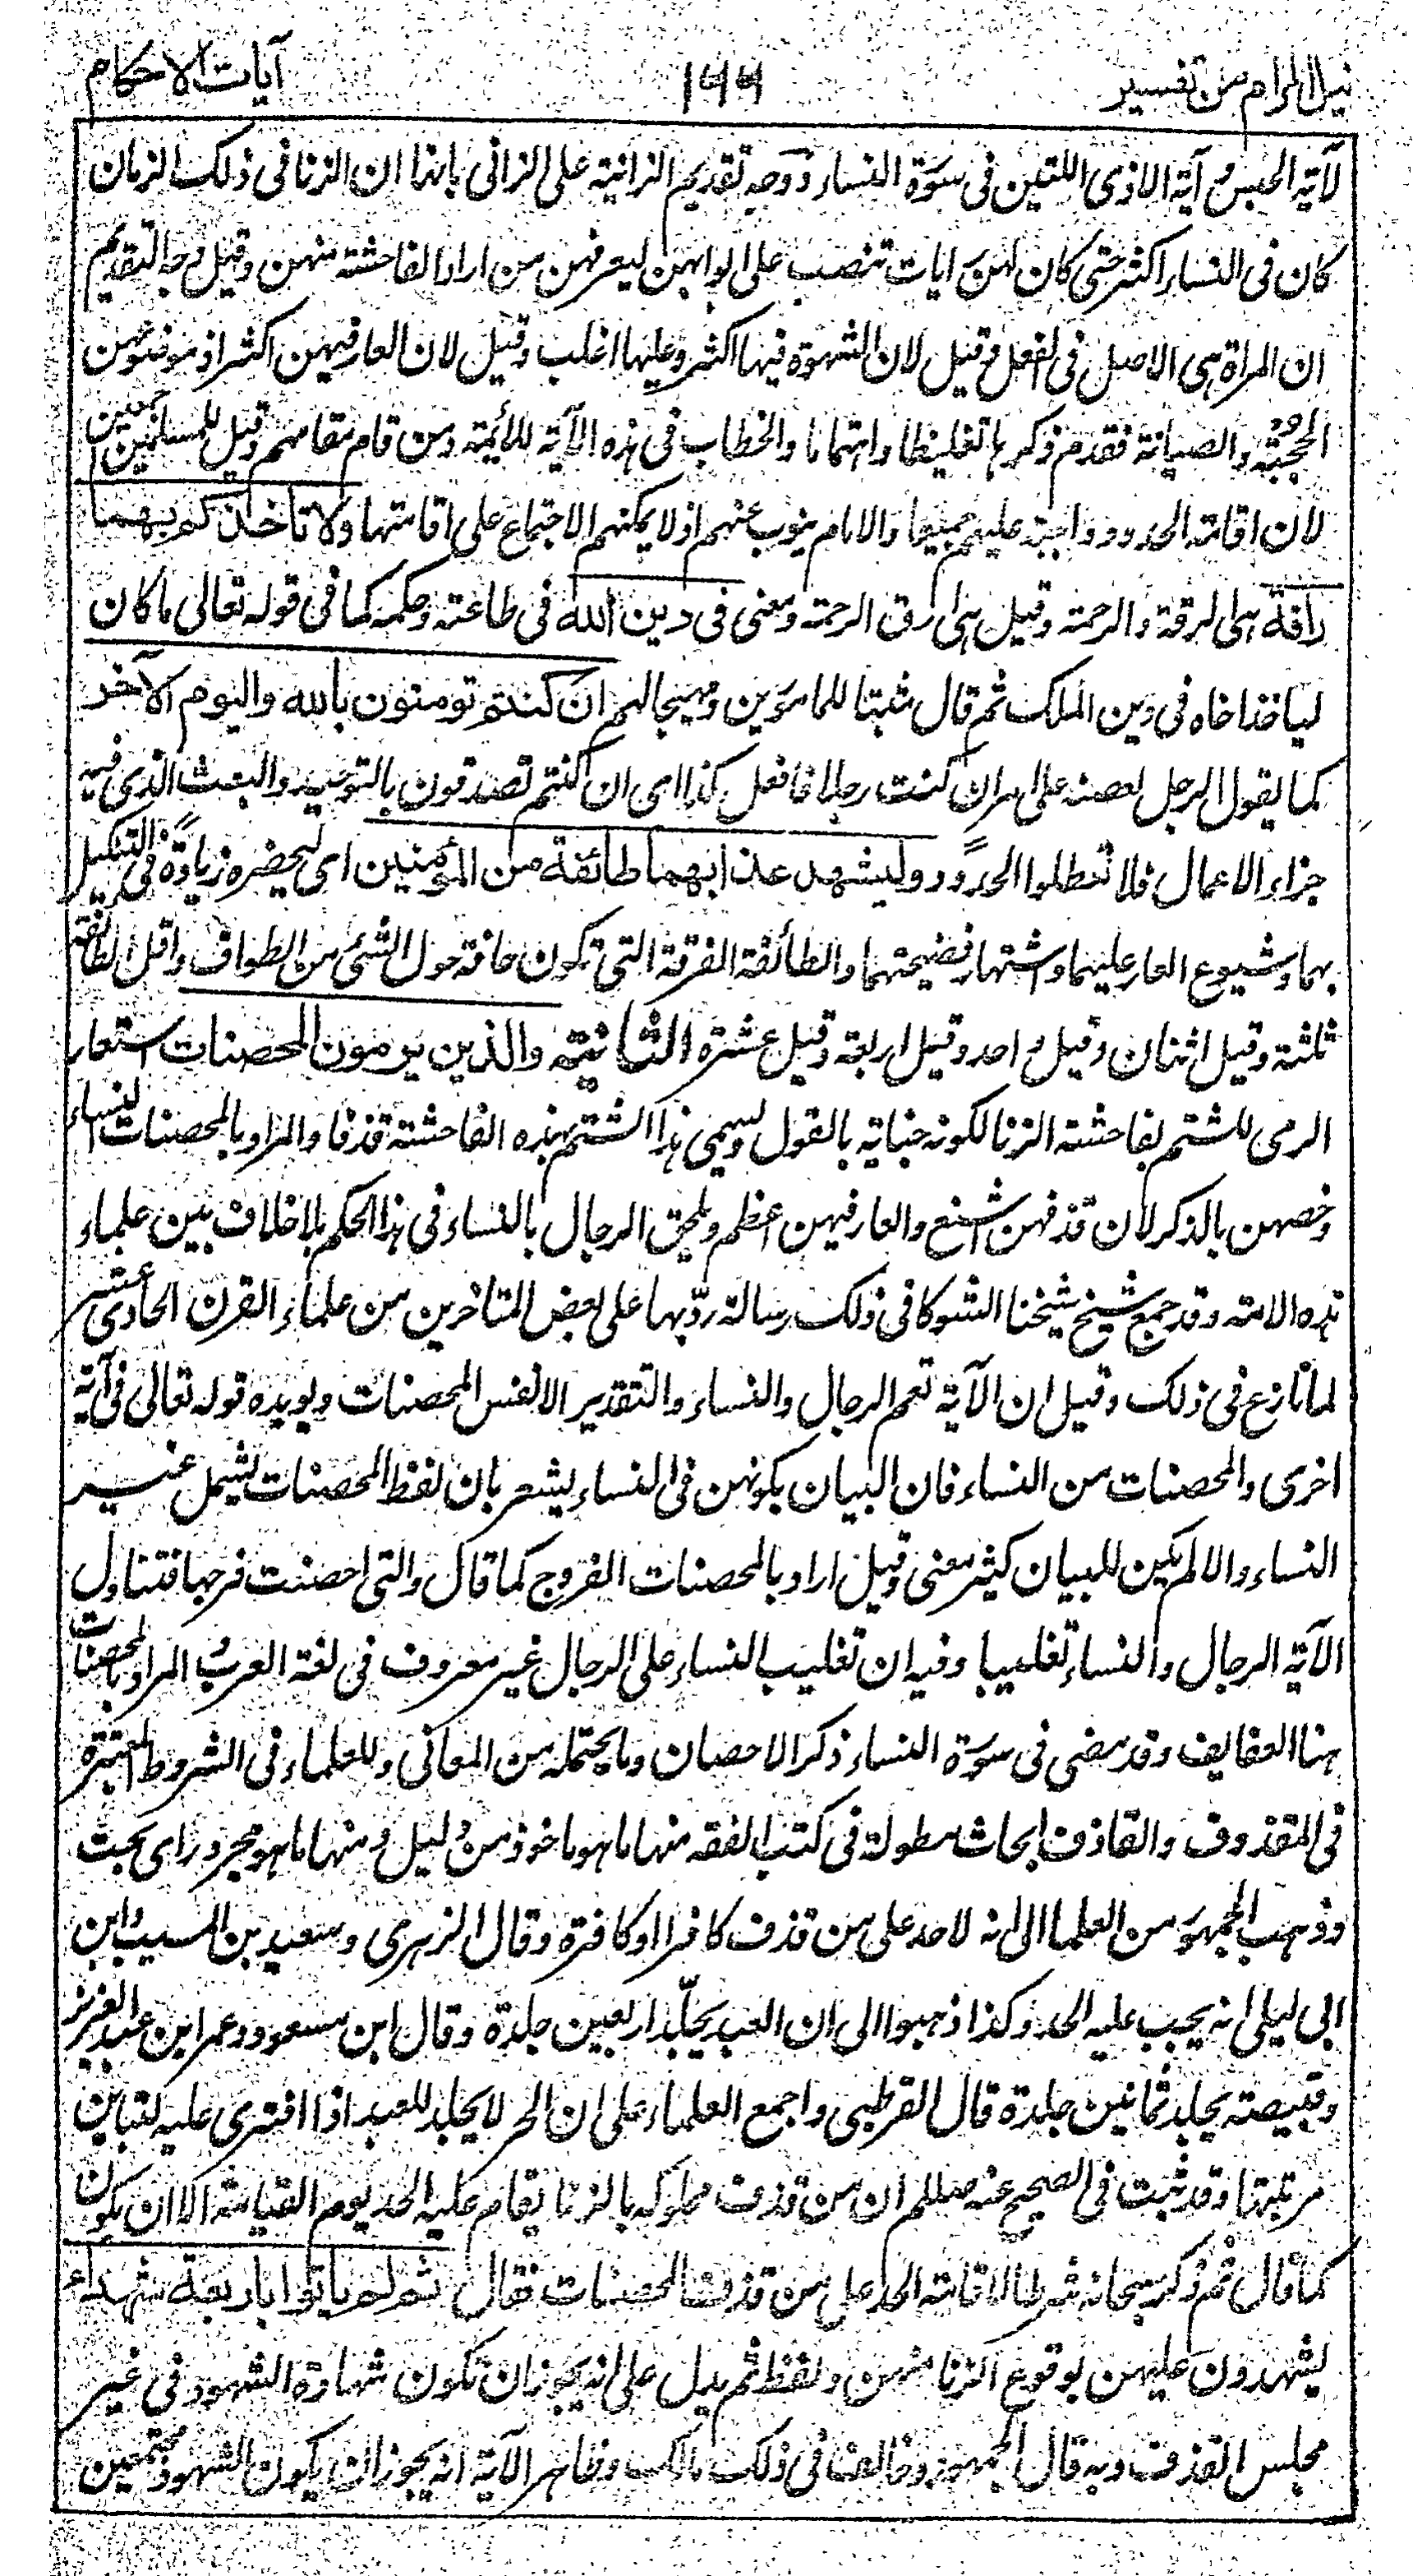 نيل المرام من تفسير
١٩٩
آيات الاحكام
لآية الحبس و آية الاذى اللتين فى سورة النساء و وجه تقديم الزانية على الزانى ههنا ان الزنا فى ذلك الزمان
كان فى النساء اكثر حتى كان لهن رايات تنصب على ابوابهن ليعرفهن من اراد الفاحشة منهن وقيل وجه التقديم
ان المراة هى الاصل فى الفعل وقيل لان الشهوة فيها اكثر وعليها اغلب وقيل لان العار فيهن اكثر اذ موضوعهن
الحجبة والصيانة فقدم ذكرها تغليظا واهتماما والخطاب فى هذه الآية للأئمة ومن قام مقامهم وقيل للمسلمين اجمعين
لان اقامة الحدود واجبة عليهم جميعا والامام ينوب عنهم اذ لا يمكنهم الاجتماع على اقامتها ولا تاخذكم بهما
رافة هى الرقة والرحمة وقيل هى ارق الرحمة ومعنى فى دين الله فى طاعته وحكمه كما فى قوله تعالى ما كان
لياخذ اخاه فى دين الملك ثم قال مثبتا للمامورين ومهيجا لهم ان كنتم تومنون بالله واليوم الآخر
كما يقول الرجل يحضه على امر ان كنت رجلا فافعل كذا اى ان كنتم تصدقون بالتوحيد والبعث الذى فيه
جزاء الاعمال فلا تعطلوا الحدود وليشهد عذابهما طائفة من المؤمنين اى ليحضره زيادة فى التنكيل
بهما وشيوع العار عليهما واشتهار فضيحتهما والطائفة الفرقة التى تكون حافة حول الشئ من الطواف واقل الطائفة
ثلثة وقيل اثنان وقيل واحد وقيل اربعة وقيل عشرة الثانية والذين يرمون المحصنات استعار
الرمى للشتم بفاحشة الزنا لكونه جناية بالقول ويسمى هذا الشتم بهذه الفاحشة قذفا والمراد بالمحصنات النساء
وخصهن بالذكر لان قذفهن اشنع والعار فيهن اعظم ويلحق الرجال بالنساء فى هذا الحكم بلا خلاف بين علماء
هذه الامة وقد جمع شيخ شيخنا الشوكانى فى ذلك رسالة ردّ بها على بعض المتاخرين من علماء القرن الحادى عشر
لما نازع فى ذلك وقيل ان الآية تعم الرجال والنساء والتقدير الانفس المحصنات ويويده قوله تعالى فى آية
اخرى والمحصنات من النساء فان البيان بكونهن فى النساء يشعر بان لفظ المحصنات يشمل غير
النساء والا لم يكن للبيان كثير معنى وقيل اراد بالمحصنات الفروج كما قال والتى احصنت فرجها فتناول
الآية الرجال والنساء تغليبا وفيه ان تغليب النساء على الرجال غير معروف فى لغة العرب والمراد بالمحصنات
هنا العفايف وقد مضى فى سورة النساء ذكر الاحصان وما يحتمله من المعانى وللعلماء فى الشروط المعتبرة
فى المقذوف والقاذف ابحاث مطولة فى كتب الفقه منها ما هو ماخوذ من دليل ومنها ما هو مجرد راى بحت
وذهب الجمهور من العلما الى انه لا حد على من قذف كافرا او كافرة وقال الزهرى وسعيد بن المسيب وابن
ابى ليلى انه يجب عليه الحد وكذا ذهبوا الى ان العبد يجلّد اربعين جلدة وقال ابن مسعود وعمر ابن عبد العزيز
وقبيصة يجلد ثمانين جلدة قال القرطبى واجمع العلماء على ان الحر لا يجلد للعبد اذا افترى عليه لتباين
مرتبتهما وقد ثبت فى الصحيح عنه صللم ان من قذف مملوكه بالزنا يقام عليه الحد يوم القيامة الا ان يكون
كما قال ثم ذكر سبحانه شرطا لاقامة الحد على من قذف المحصنات فقال ثم لم ياتوا باربعة شهداء
يشهدون عليهن بوقوع الزنا منهن ولفظ ثم يدل على انه يجوز ان تكون شهادة الشهود فى غير
مجلس القذف وبه قال الجمهور وخالف فى ذلك مالك وظاهر الآية انه يجوز ان يكون الشهود مجتمعين